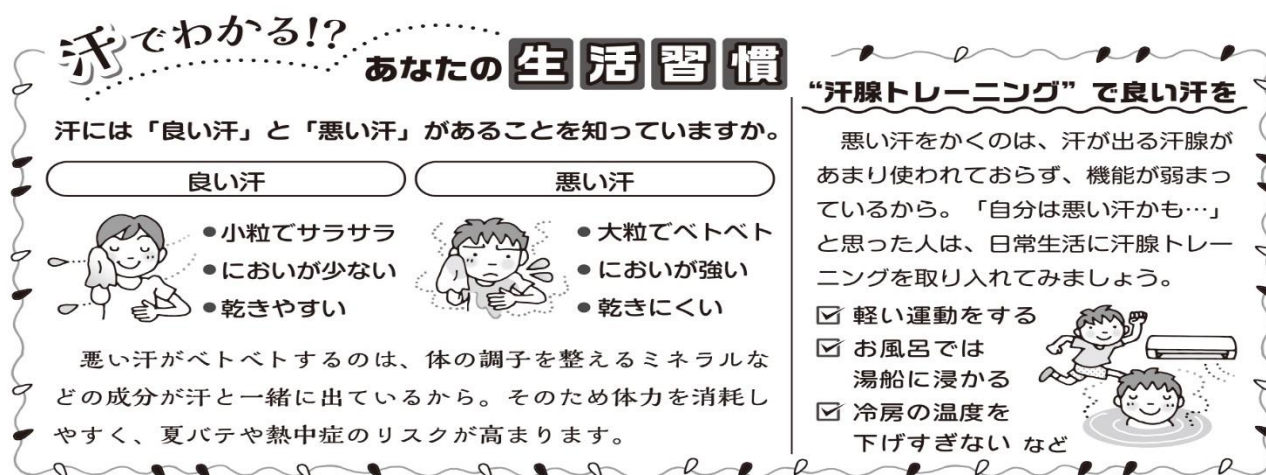 汗でわかる!?
あなたの生活習慣
汗には「良い汗」と「悪い汗」があることを知っていますか。
良い汗
●小粒でサラサラ
●においが少ない
●乾きやすい
悪い汗
●大粒でベトベト
●においが強い
●乾きにくい
悪い汗がベトベトするのは、体の調子を整えるミネラルな
どの成分が汗と一緒に出ているから。そのため体力を消耗し
やすく、夏バテや熱中症のリスクが高まります。
“汗腺トレーニング”で良い汗を
悪い汗をかくのは、汗が出る汗腺が
あまり使われておらず、機能が弱まっ
ているから。「自分は悪い汗かも…」
と思った人は、日常生活に汗腺トレー
ニングを取り入れてみましょう。
☑軽い運動をする
☑お風呂では
湯船に浸かる
☑冷房の温度を
下げすぎない など